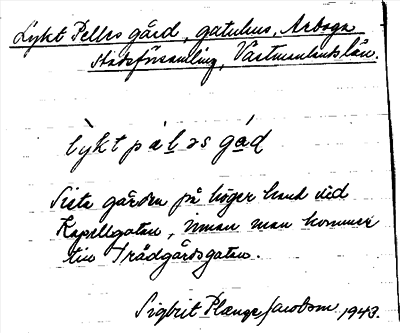 Lykt Pelles gård, gatuhus, Arboga
stadsförsamling, Västmanlands län.
lyktpäləs gåd
Sista gården på höger hand vid
Kapellgatan, innan man kommer
till Trädgårdsgatan.
Sigbrit Plænge Jacobson 1943.